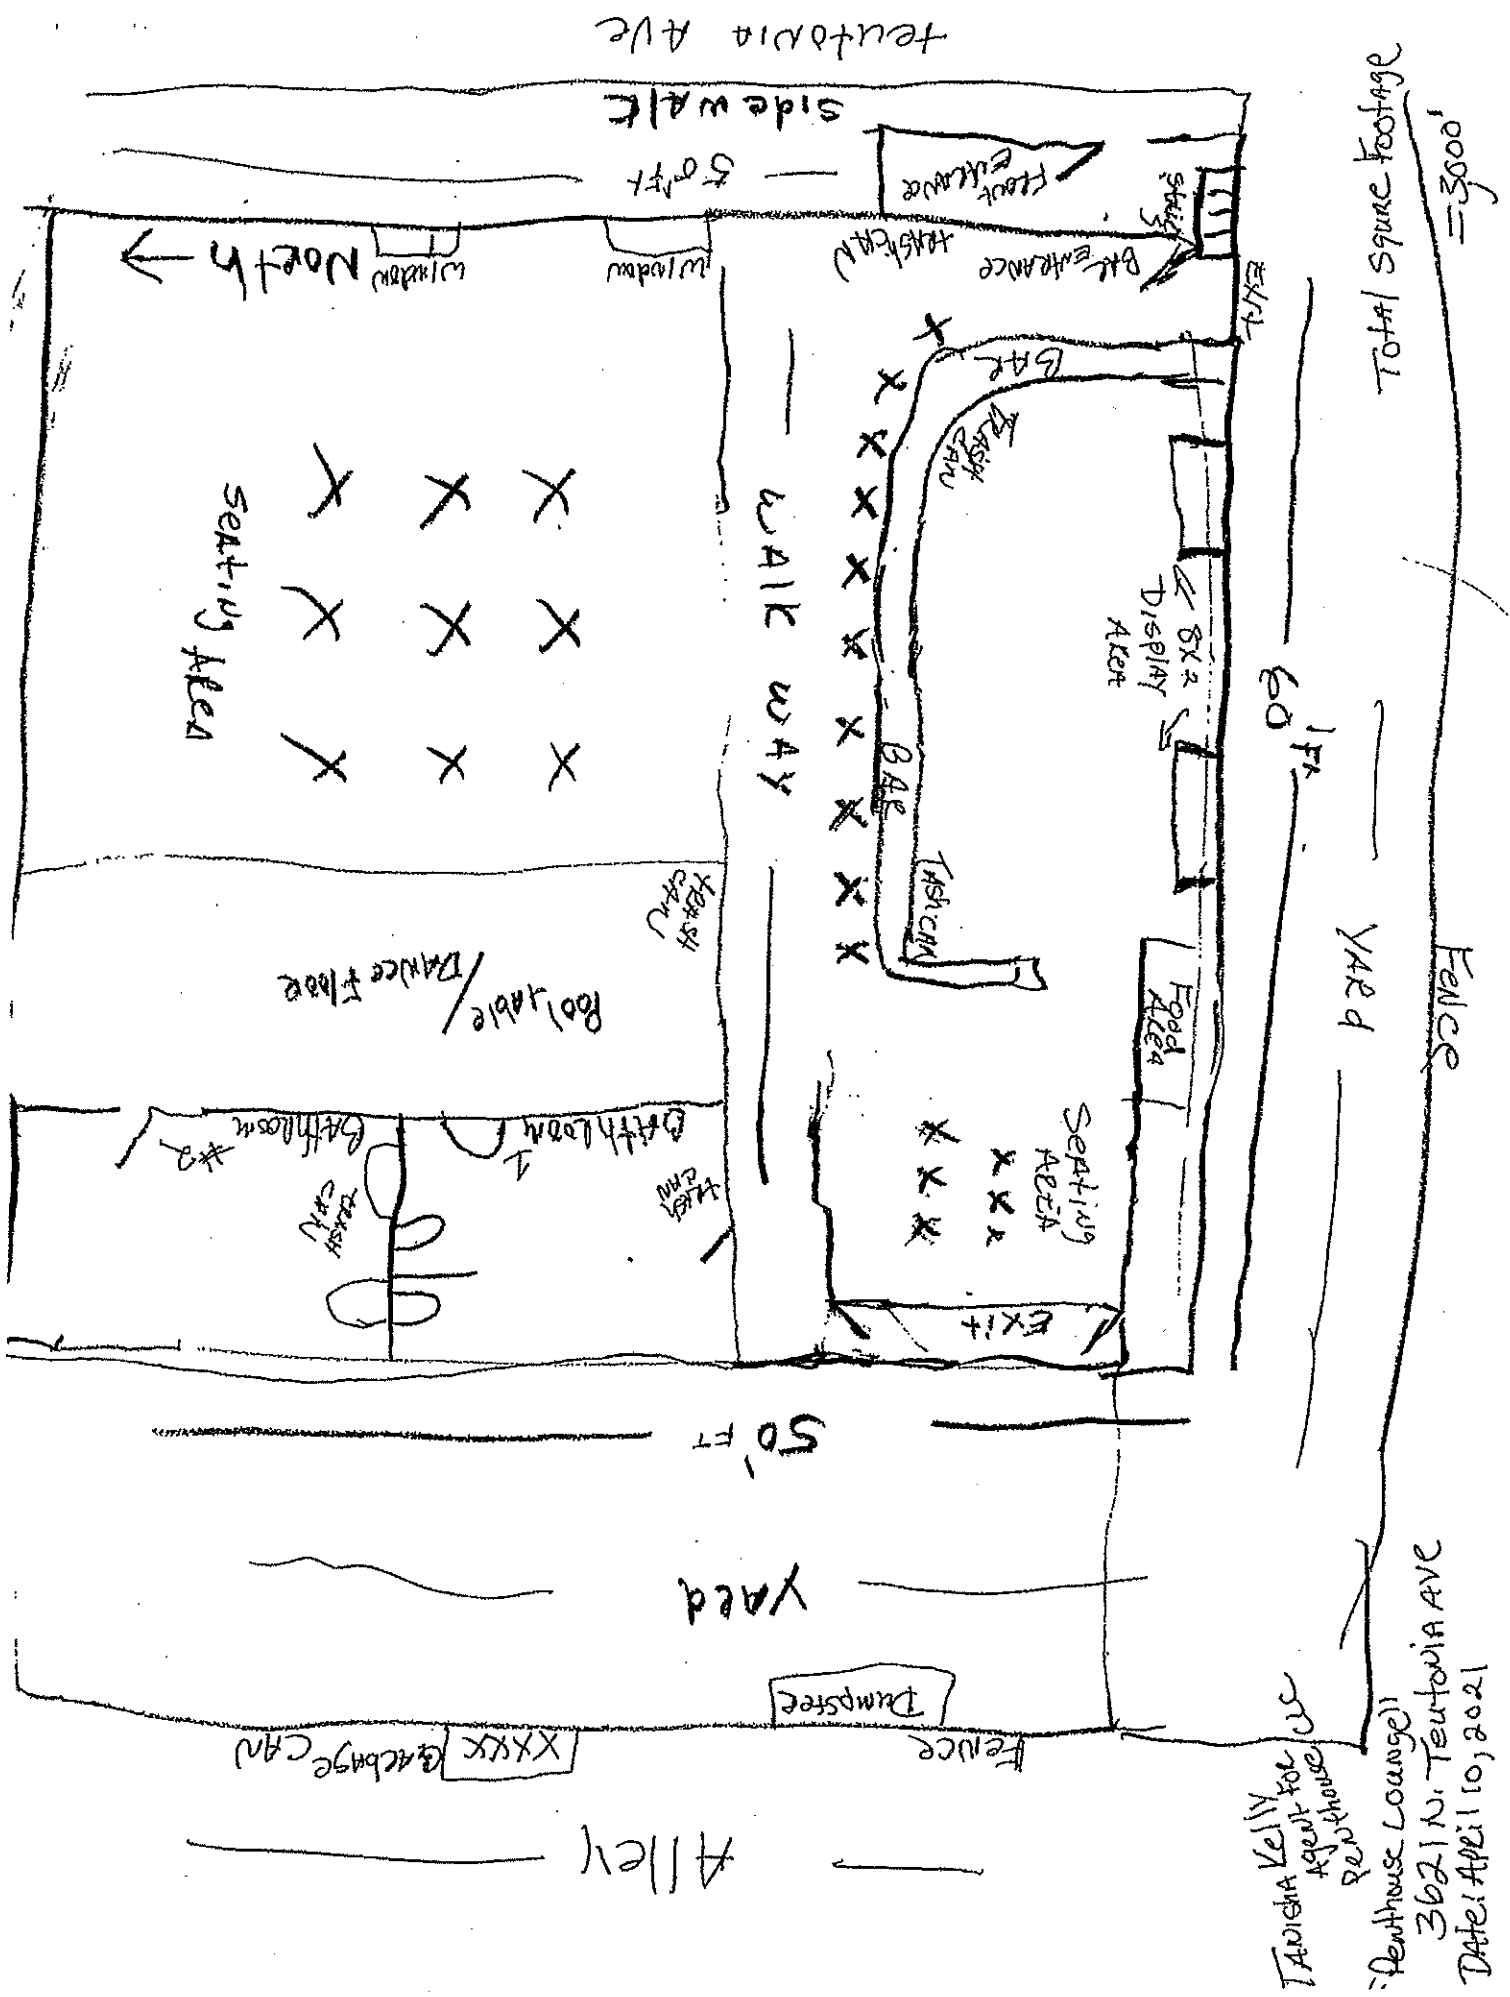 teutoNiA AVe
Side WAlk
50'Ft
FRONt
ENtRANCe
StAiRS
NoRth
WiNdow
WiNdow
tRASH CAN
BAR ENtRANCe
Exit
BAR
tRASH
CAN
SeAtiNg AReA
X X X
X X X
X X X
WAlk WAY
X
X
X
X
X
X
X
X
X
X
BAR
8x2
DisplAY
AReA
60'Ft
TASH CAN
tRASH
CAN
Pool tAble
/DANce FlooR
Food
AReA
BAthRoom
#2
BAthRoom
1
tRASH
CAN
tRASH
CAN
SeAtiNg
AReA
X X X
X X X
Exit
50'FT
YARd
YARd
FeNce
DumpsteR
FeNce
XXXX
GARbAge CAN
Alley
TotAl Squre FootAge
=3000'
TANishA Kelly
AgeNt FoR
PeNthouse LLC
"PeNthouse Lounge"
3621 N. TeutoNiA AVe
DAte: APRil 10, 2021